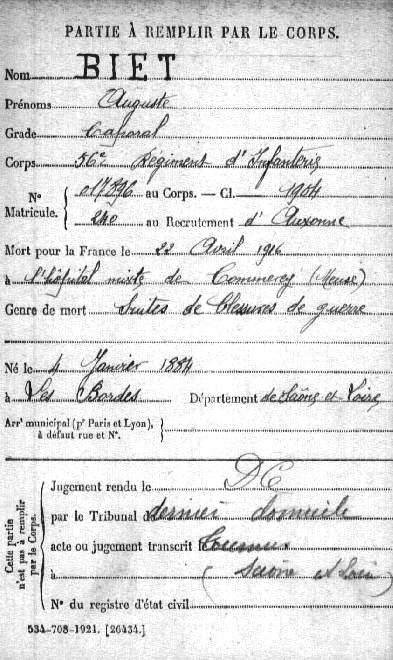 PARTIE À REMPLIR PAR LE CORPS.
Nom BIET
Prénoms Auguste
Grade Caporal
Corps 56e Régiment d'Infanterie
N° Matricule. 017396 au Corps. — Cl. 1904
240 au Recrutement d'Auxonne
Mort pour la France le 22 Avril 1916
à l'hôpital mixte de Commercy (Meuse)
Genre de mort Suites de blessures de guerre
Né le 4 Janvier 1884
à Les Bordes Département de Saône et Loire
Arrt municipal (pr Paris et Lyon),
à défaut rue et N°.
Cette partie n'est pas à remplir par le Corps.
Jugement rendu le DC
par le Tribunal dernier domicile
acte ou jugement transcrit Tournus
à (Saône et Loire)
N° du registre d'état civil
534-708-1921. [26434.]